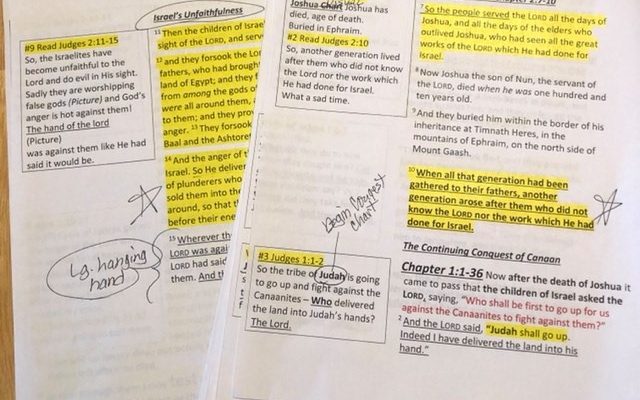 Israel's Unfaithfulness
#9 Read Judges 2:11-15
So, the Israelites have
become unfaithful to the
Lord and do evil in His sight.
Sadly they are worshipping
false gods (Picture) and God's
anger is hot against them!
The hand of the lord
(Picture)
was against them like He had
said it would be.
11 Then the children of Israe
sight of the LORD, and serv
12 and they forsook the
fathers, who had brough
land of Egypt; and they
from among the gods o
were all around them,
to them; and they pro
anger. 13 They forsook
Baal and the Ashtore
14 And the anger of t
Israel. So He deliver
of plunderers who
sold them into the
around, so that t
before their ene
15 Wherever th
LORD was agai
LORD had said
them. And t
Lg. hanging
hand
Joshua Chart Joshua has
died, age of death.
Buried in Ephraim.
#2 Read Judges 2:10
So, another generation lived
after them who did not know
the Lord nor the work which
He had done for Israel.
What a sad time.
Begin Conquest
Chart
#3 Judges 1:1-2
So the tribe of Judah is going
to go up and fight against the
Canaanites – Who delivered
the land into Judah's hands?
The Lord.
7 So the people served the LORD all the days of
Joshua, and all the days of the elders who
outlived Joshua, who had seen all the great
works of the LORD which He had done for
Israel.
8 Now Joshua the son of Nun, the servant of
the LORD, died when he was one hundred and
ten years old.
9 And they buried him within the border of his
inheritance at Timnath Heres, in the
mountains of Ephraim, on the north side of
Mount Gaash.
10 When all that generation had been
gathered to their fathers, another
generation arose after them who did not
know the LORD nor the work which He had
done for Israel.
The Continuing Conquest of Canaan
Chapter 1:1-36 Now after the death of Joshua it
came to pass that the children of Israel asked the
LORD, saying, "Who shall be first to go up for us
against the Canaanites to fight against them?"
2 And the LORD said, "Judah shall go up.
Indeed I have delivered the land into his
hand."